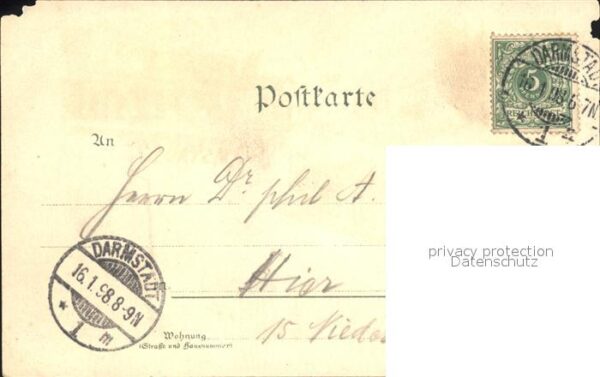 Postkarte
An
Herrn Dr. phil A.
Hier
Wohnung
(Straße und Hausnummer)
15 Nieder
DARMSTADT
16.1.98.8-9N
* 1 m
DARMSTADT
5
privacy protection
Datenschutz